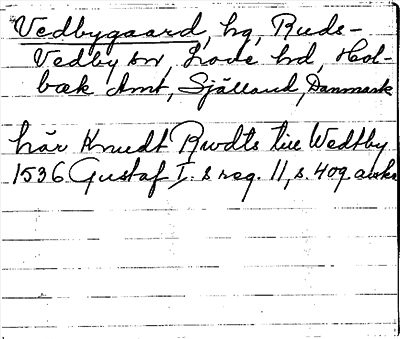 Vedbygaard, hg, Ruds-
Vedby sn, Love hd, Hol-
bæk Amt, Själland, Danmark
här Knudt Rwdts till Wedtby
1536 Gustaf I:s reg. 11, s. 409 avskr